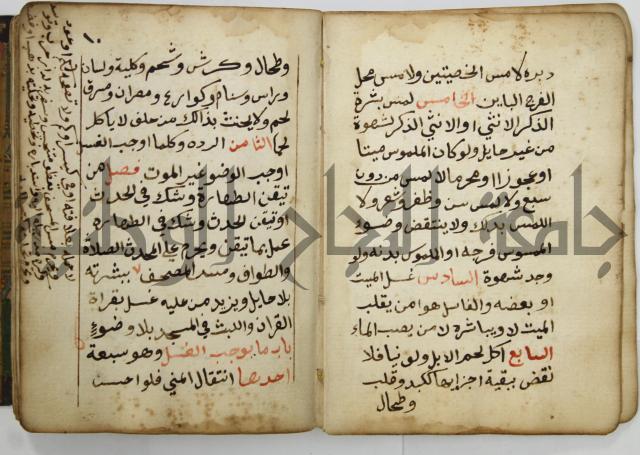 دبره لا مس الخصيتين ولا مس محل
الفرج البائن الخامس لمس بشرة
الذكر الانثي او الانثي الذكر لشهوة
من غير حايل ولو كان الملموس ميتا
او عجوزا او محرما لا لمس من دون
سبع ولا لمس سن وظفر وشعر ولا
اللمس بذلك ولا ينتقض وضوء
الممسوس فرجه او الملموس بدنه ولو
وجد شهوة السادس غسل الميت
او بعضه والغاسل هو من يقلب
الميت لا ويباشره لا من يصب الماء
السابع اكل لحم الابل ولو نيا فلا
نقض ببقية اجزايها ككبد وقلب
وطحال
وطحال وكرش وشحم وكلية ولسان
وراس وسنام وكوارع ومصران ومرق
لحم ولا يحنث بذالك من حلف لا ياكل
لحما الثامن الرده وكلما اوجب الغسل
اوجب الوضو غير الموت فصل من
تيقن الطهارة وشك في الحدث
او تيقن الحدث وشك في الطهارة
عمل بما تيقن ويحرم على المحدث الصلاة
والطواف ومس المصحف ببشرته
بلا حايل ويزيد من عليه غسل بقراة
القران واللبث في المسجد بلا وضوء
باب ما يوجب الغسل وهو سبعة
احدها انتقال المني فلو احس
جامعة النجاح الوطنية